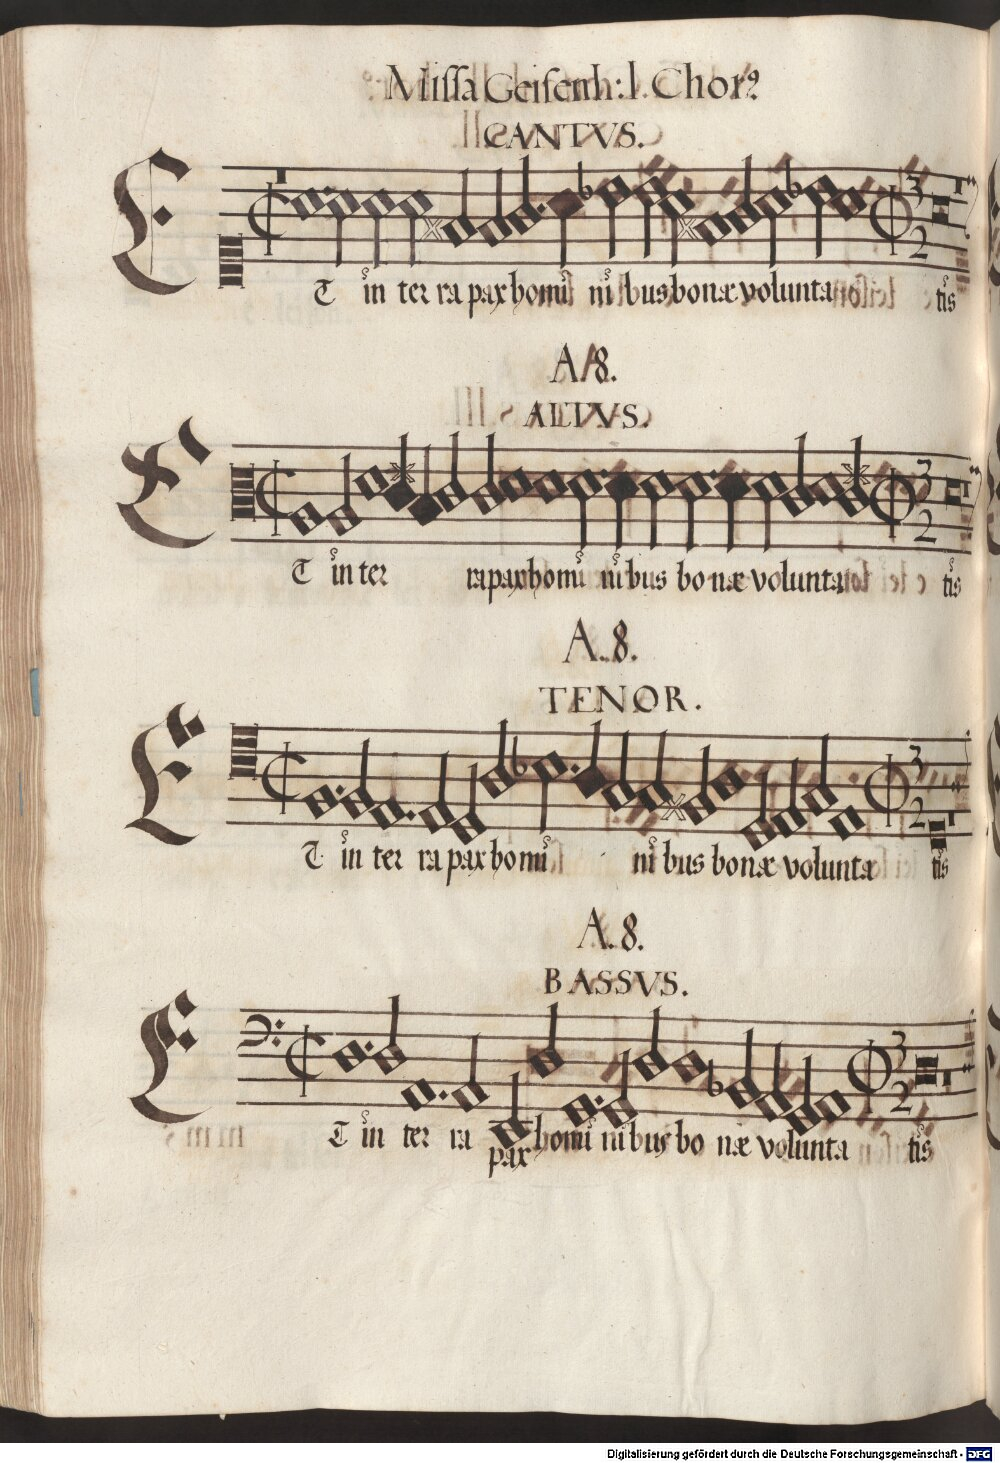 Missa Geisenh: I. Chorꝰ
CANTVS.
ET in ter ra pax homi ni bus bonæ volunta tis
A 8.
ALTVS.
ET in ter ra pax homi ni bus bo næ volunta tis
A. 8.
TENOR.
ET in ter ra pax homi ni bus bonæ volunta tis
A. 8.
BASSVS.
ET in ter ra pax homi ni bus bo næ volunta tis
Digitalisierung gefördert durch die Deutsche Forschungsgemeinschaft - DFG